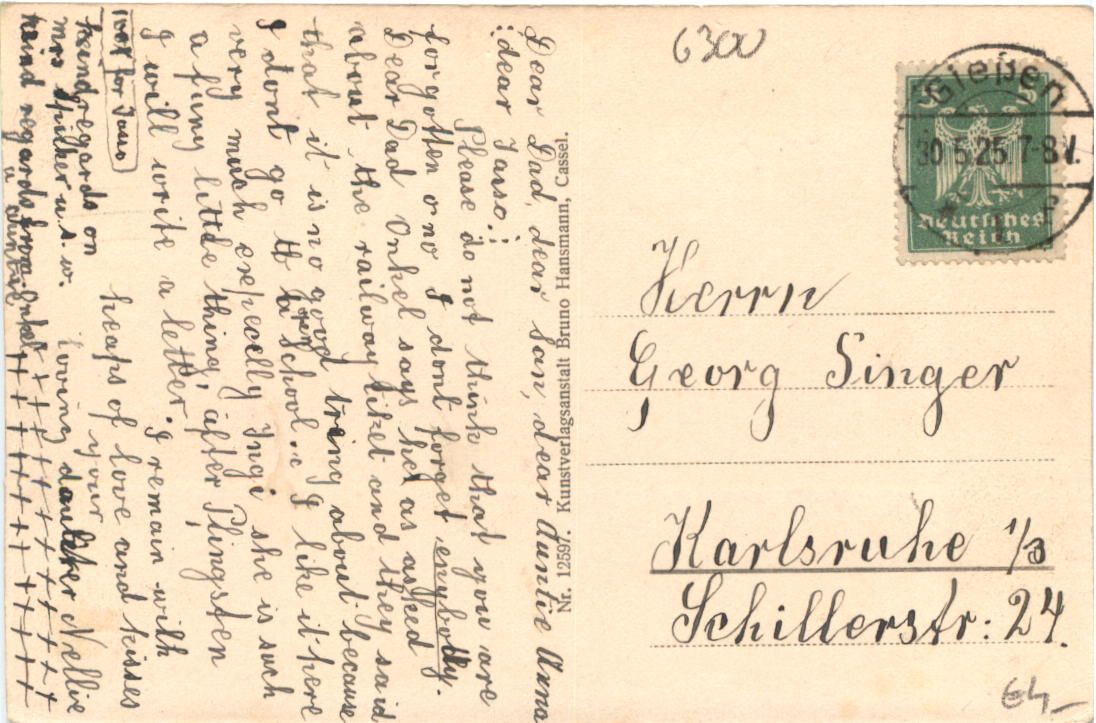 Dear Dad, dear San, dear Auntie Anna
dear Tauso.
Please do not think that you are
forgotten o no I dont forget enybody.
Dear Dad Onkel says he as asked
about the railway tiket and they said
that it is no good tring about because
I dont go to a School. I like it here
very much especelly Ingi she is such
a funy little thing, after Pfingsten
I will write a letter. I remain with
heaps of love and kisses
your
loving daughter Nellie
kind regards on
Mrs u. s. w.
keind regards from Onkel
u auntie
+ + + + + + + + + + +
+ + + + + + + + + + +
Nr. 12597. Kunstverlagsanstalt Bruno Hansmann, Cassel.
6300
Gießen
30.5.25.7-8V.
5
Deutsches
Reich
Herrn
Georg Singer
Karlsruhe i/B
Schillerstr: 24.